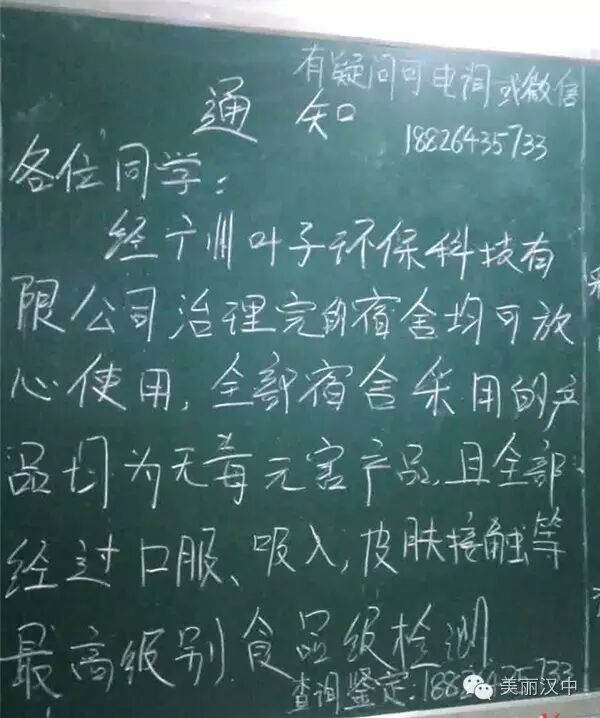 有疑问可电询或微信
18826435733
通知
各位同学：
经广州叶子环保科技有
限公司治理完的宿舍均可放
心使用，全部宿舍采用的产
品均为无毒无害产品，且全部
经过口服、吸入，皮肤接触等
最高级别食品级检测
查询鉴定：18826435733
美丽汉中